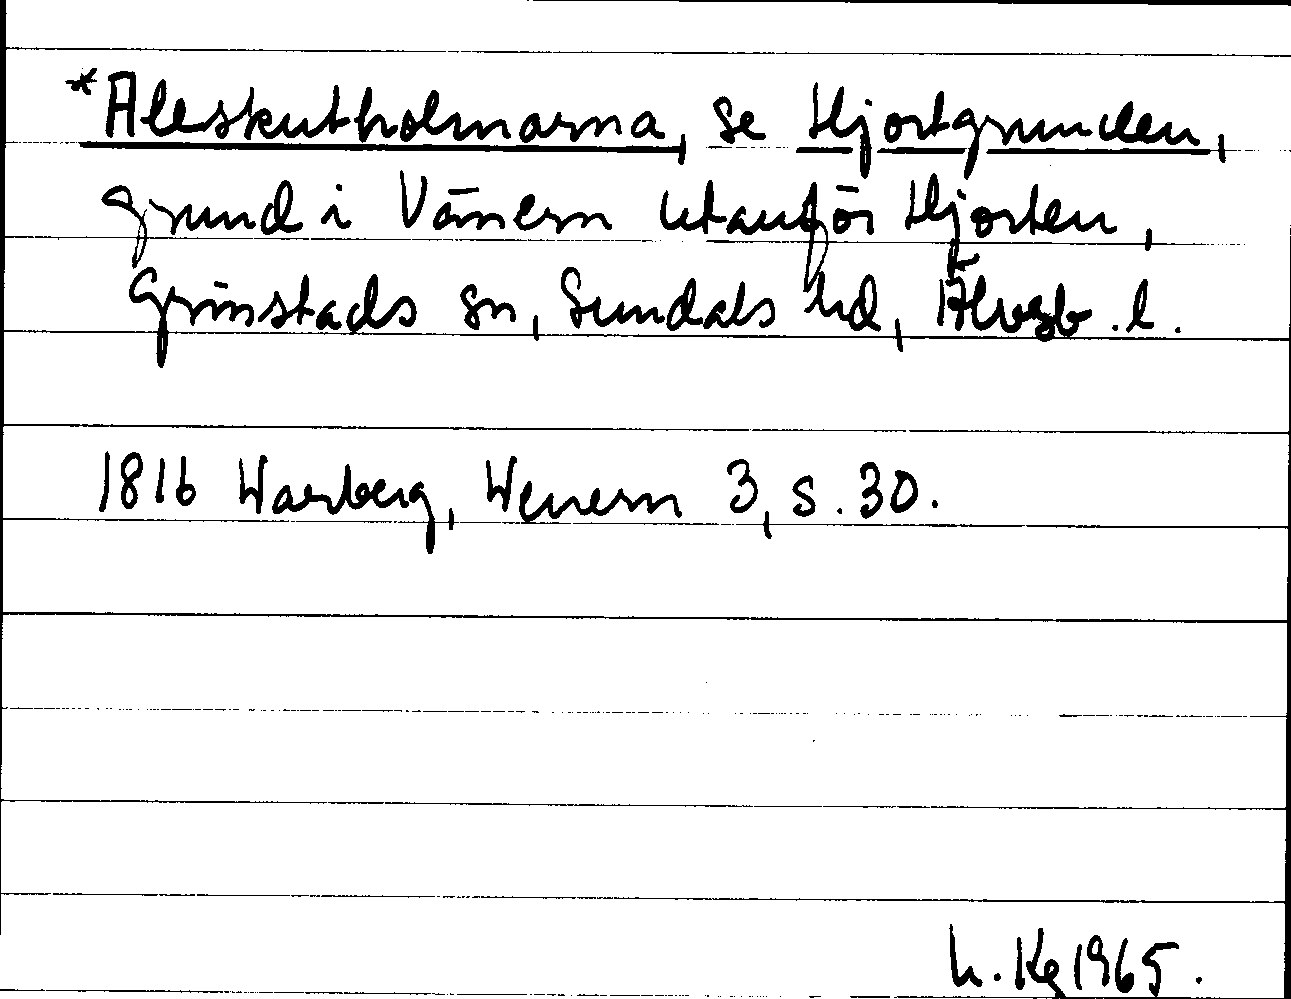 *Aleskutholmarna, se Hjortgrunden,
grund i Vänern utanför Hjorten,
Grinstads sn, Sundals hd, Älvsb. l.
1816 Warberg, Wenern 3, s. 30.
h. Kg 1965.